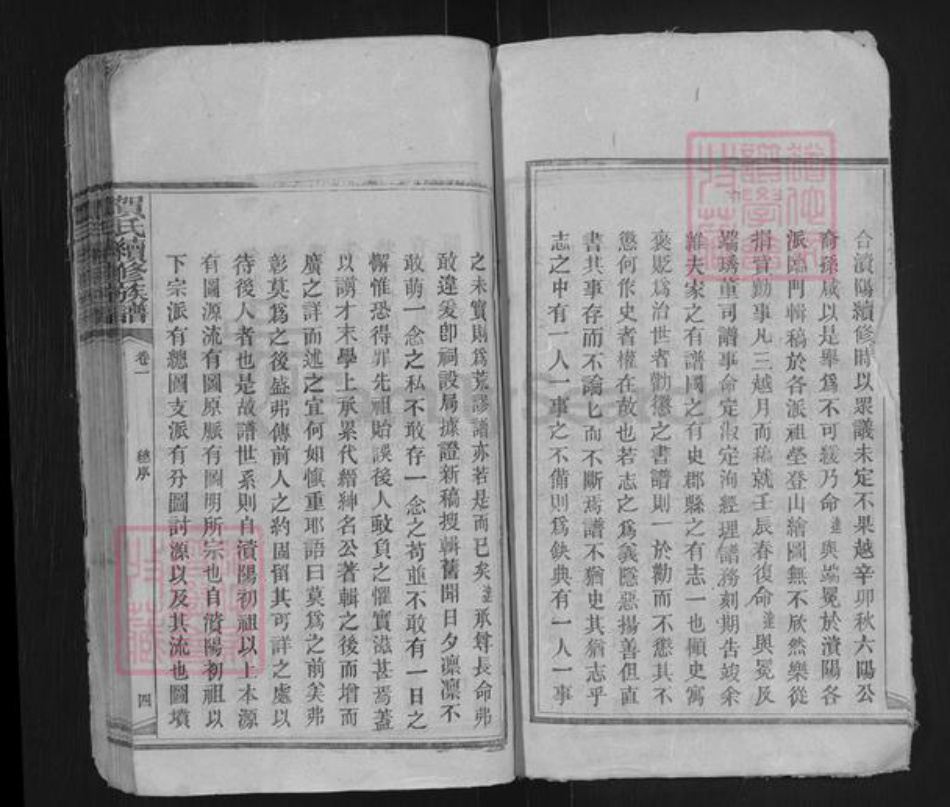 合濆陽續修時以眾議未定不果越辛卯秋六陽公
裔孫咸以是舉為不可緩乃命達與端冕於濆陽各
派臨門輯稿於各派祖塋登山繪圖無不欣然樂從
捐貲勷事凡三越月而稿就壬辰春復命達與冕及
端琇董司譜事命定淑定洵經理譜務刻期告竣余
維夫家之有譜國之有史郡縣之有志一也顧史寓
褒貶為治世者勸懲之書譜則一於勸而不懲其不
懲何作史者權在故也若志之為義隱惡揚善但直
書其事存而不論匕而不斷焉譜不猶史其猶志乎
志之中有一人一事之不備則為缺典有一人一事
之未實則為荒謬譜亦若是而已矣達承尊長命弗
敢違爰卽祠設局據證新稿搜輯舊聞日夕凛凛不
敢萌一念之私不敢存一念之苟並不敢有一日之
懈惟恐得罪先祖貽誤後人致負之懼實滋甚焉蓋
以謭才末學上承累代縉紳名公著輯之後而增而
廣之詳而述之宜何如慎重耶語曰莫為之前美弗
彰莫為之後盛弗傳前人之約固留其可詳之處以
待後人者也是故譜世系則自濆陽初祖以上本源
有圖源流有圖原脈有圖明所宗也自濆陽初祖以
下宗派有總圖支派有分圖討源以及其流也圖墳
賀氏續修族譜
卷一
總序
四